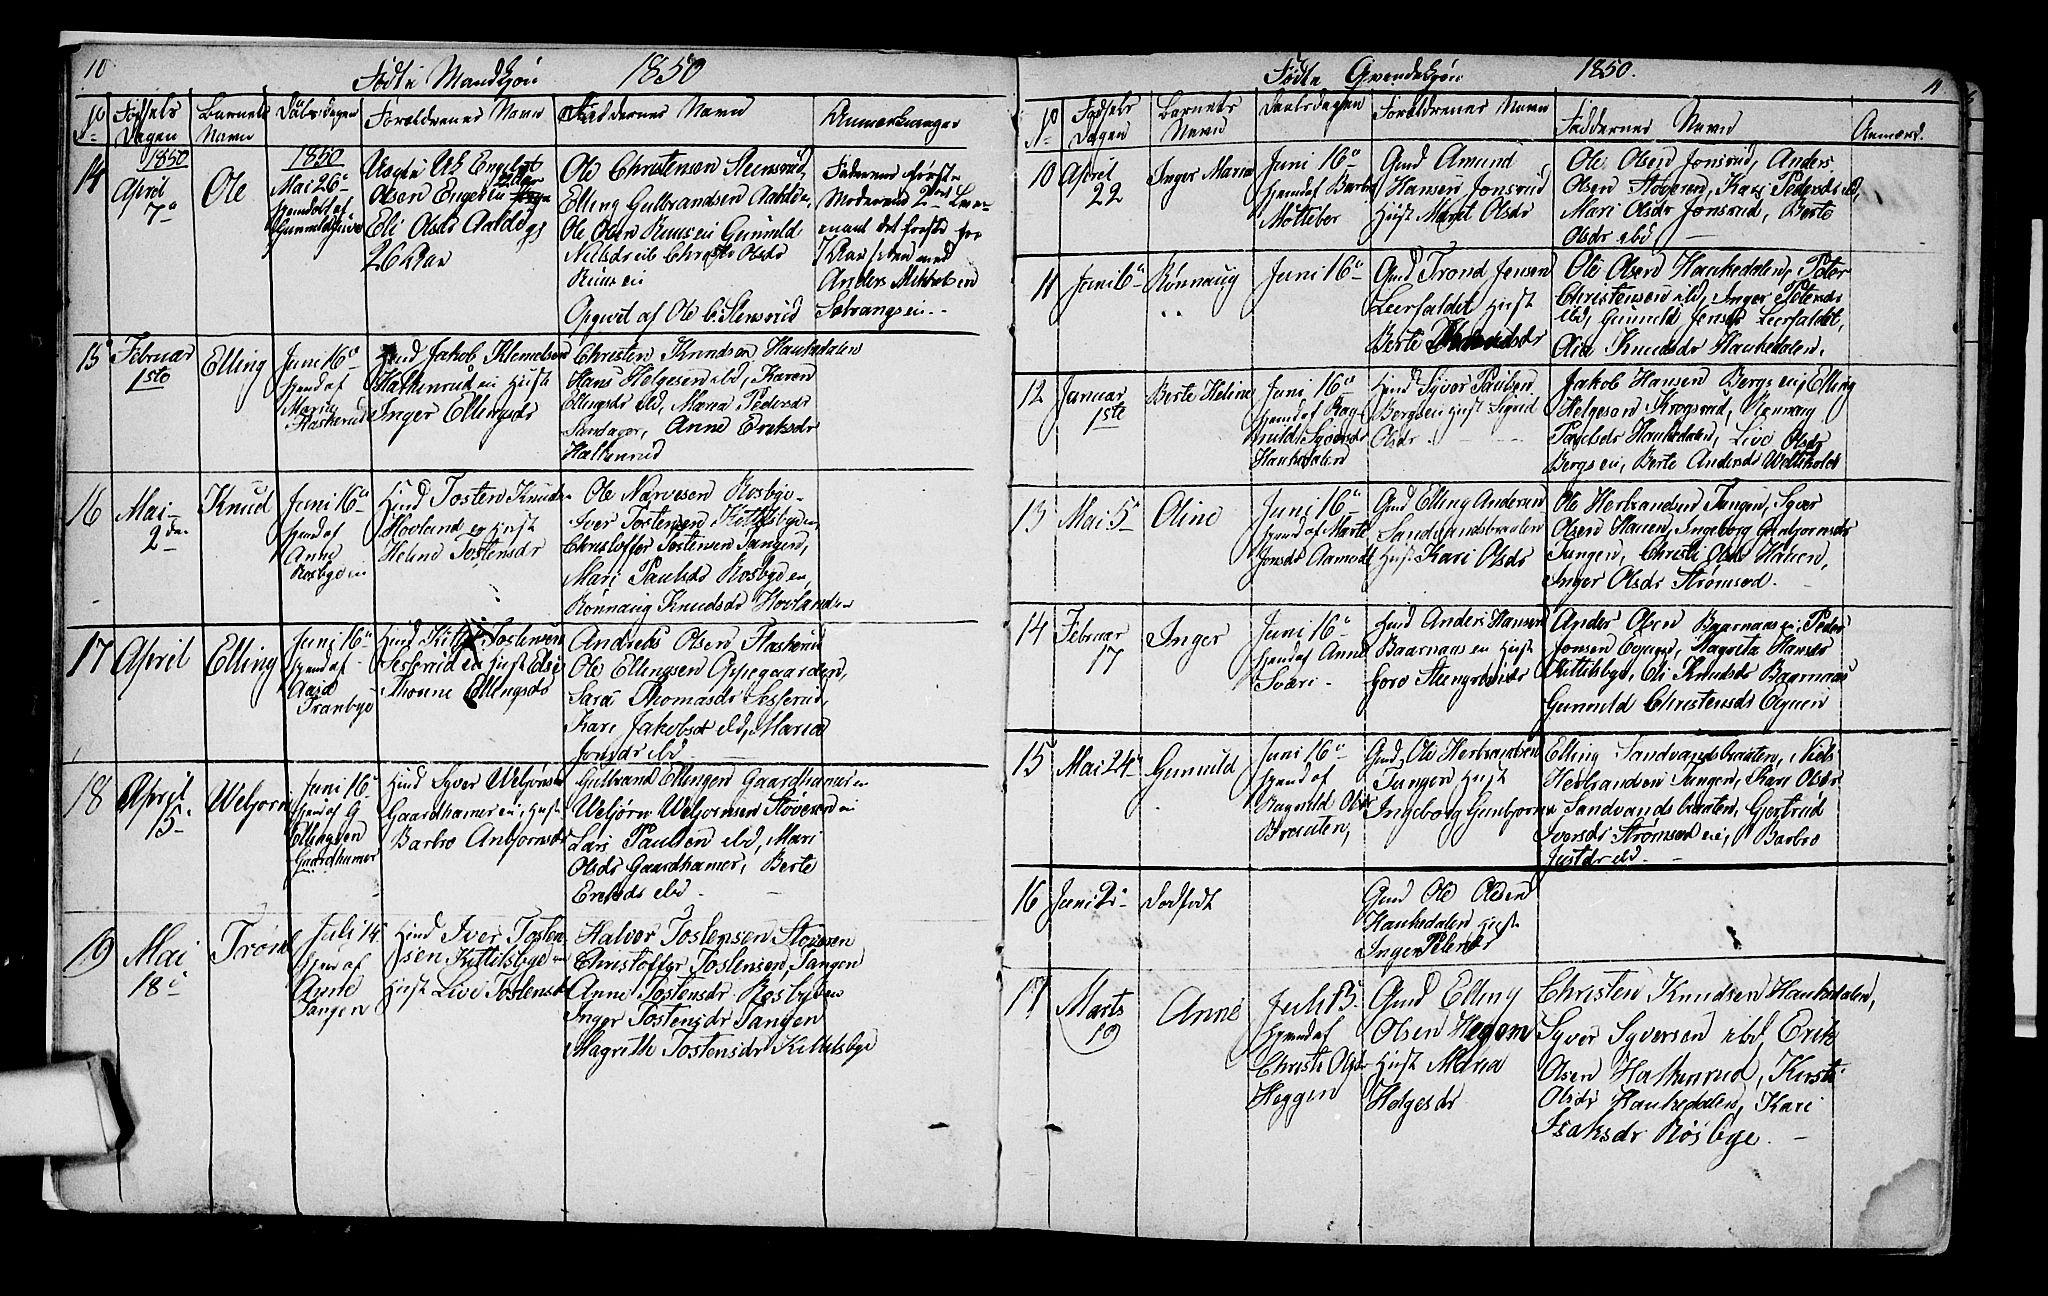 10
Födte Mandkjøn 1850
No Fødsels Dagen
Barnets Navn
Daabsdagen
Forældrenes Navn
Faddernes Navn
Anmerkninger
14
1850
April
7de
Ole
1850
Mai 26de
hjemdøbt af
Olsen
Eli Olsdr
26 Aar
Ole Christensen Stensrud,
Elling Gulbrandsen
Ole Olsen Ruusei Gunnild
Nielsdr ib Christi Olsdr
Ruusei
Opgivet af Ole C. Stensrud
Faderens første
Moderens 2det Leier-
emaal det første for
7 Aar siden med
Anders
15
Februar
1ste
Elling
Juni 16de
hjemd af
Marie
Haskerud
Gmd Jakob Klemetsen
Halkenrud ei Hust
Inger Ellingsdr
Christen Knudsen Haukedalen
Hans Helgesen ibd, Karen
Ellingsdr ibd, Maria Pedersdr
Sandager, Anne Eriksdr
Halkenrud
16
Mai
2den
Knud
Juni 16de
hjemd af
Anne
Rosbye ei
Hmd Tosten Knuds-
Hovland ei Hust
Helene Tostensdr
Ole Narvesen Rosbye
Iver Tostensen Kittilsbye ei
Christoffer Tostensen Tangen,
Mari Paulsdr Rosbye ei,
Rønnaug Knudsdr Hovland ei
17
April
Elling
Juni 16de
hjemd af
Aasd
Tranbye
Hmd Kittil Tostensen
Sisserud ei Hust Else
Thonne Ellingsdr
Andreas Olsen Flaskerud
Ole Ellingsen Oppegaarden,
Sara Thomasdr Sisserud,
Kari Jakobsdr ibd, Maria
Jonsdr ibd
18
April
15
Weljorn
Juni 16
hjemd af G
Ellingsen
Gaardhamer
Hmd Syver Weljørnsen
Gaardhamer ei Hust
Barbro Anbjornsdr
Gulbrand Ellingen Gaardhamer ei
Weljørn Weljornsen Støveren ei
Lars Paulsen ibd, Mari
Olsdr Gaardhamer, Berte
Eriksdr ibd
19
Mai
18de
Trønd
Juli 14
hjem af
Anne
Tangen
Hmd Iver Tosten-
sen Kittilsbye ei
Hust Live Tostensdr
Halvor Tostensen Støveren
Christoffer Tostensen Tangen
Anne Tostensdr Rosbyeen
Inger Tostensdr Tangen
Magrith Tostensdr Kittilsbye
11
Födte Qvindekjøn 1850.
No Fødsels Dagen
Barnets Navn
Daabsdagen
Forældrenes Navn
Faddernes Navn
Anmærk.
10
April
22
Inger Maria
Juni 16de
hjemd af Barbro
Mottebøe
Gmd Amund
Hansen Jonsrud
Hust Maret Olsdr
Ole Olsen Jonsrud, Anders
Olsen Støveren, Kari Pedersdr ibd,
Mari Olsdr Jonsrud, Berte
Olsdr ibd
11
Juni 6de
Rønnaug
Juni 16de
Gmd Trond Jensen
Leerfaldet Hust
Berte
Ole Olsen Haukedalen, Peter
Christensen ibd, Inger Petersdr
ibd, Gunnild Jensdr Leerfaldet,
Olia Knudsdr Haukedalen.
12
Januar
1ste
Berte Helene
Juni 16de
hjemd af Rag-
nild Syversdr
Haukedalen
Hmd Syver Paulsen
Bergs ei Hust Sigrid
Olsdr
Jakob Hansen Bergs ei, Elling
Helgesen Krogsrud, Rønnaug
Paulsdr Haukedalen, Live Olsdr
Bergs ei, Berte Andersdr
13
Mai 5de
Oline
Juni 16de
hjemd af Marte
Jonsdr Aamodt
Gmd Elling Andersen
Sandvandsbraaten
Hust Kari Olsdr
Ole Herbrandsen Tangen, Syver
Olsen Hauen, Ingeborg Gunbjornsdr
Tangen, Christi Olsdr Hauen,
Inger Olsdr Strømsod.
14
Februar
17
Inger
Juni 16de
hjemd af Anne
Svari
Hmd Anders Hansen
Baarnaas ei Hust
Goro Stengrimsdr
Ander Olsen Baarnaas ei, Peder
Jonsen Eqved, Magreta Hanser
Kittilsbye, Eli Knudsdr Baarnaas
Gunnild Christensdr
15
Mai 24
Gunnild
Juni 16de
hjemd af
Ragnild Olsdr
Braaten,
Gmd, Ole Herbrandsen
Tangen Hust
Ingeborg Gunbjornsdr
Elling Sandvandsbraaten, Niels
Herbrandsen Tangen, Kari Olsdr
Sandvandsbraaten, Gjertrud
Iversdr Strømsod ei, Barbro
Justdr ibd.
16
Juni 2
Dødfødt
Gmd Ole Olsen
Haukedalen Hust
Inger Petersdr
17
Marts
19
Anne
Juli 15
hjemd af
Christi Olsdr
Heggen
Gmd Elling
Olsen Heggen
Hust Maria
Helgesdr
Christen Knudsen Haukedalen,
Syver Syversen ibd, Erik
Olsen Halkenrud, Kirsti
Olsdr Haukedalen, Kari
Isaksdr Røsbye.